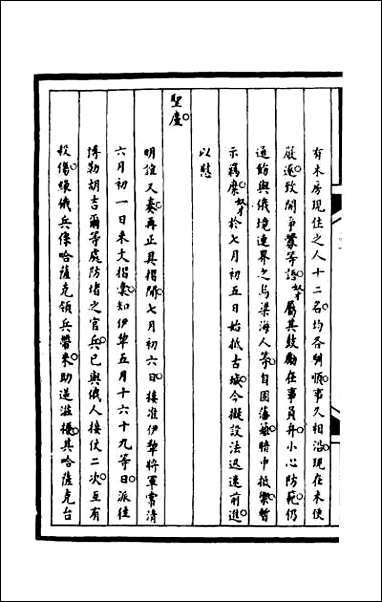 有木房現住之人十二名均各馴順事久相沿現在未便
嚴逐致開爭釁等語奴才屬其鼓勵在事員弁小心防範仍
通飭與俄境連界之烏梁海人等自固藩籬暗中抵禦暫
示羈縻奴才於七月初五日始抵古城今擬設法迅速前進
以慰
聖廑
明誼又奏再正具摺間七月初六日接准伊犁將軍常清
六月初一日來文摺稾知伊犁五月十六十九等日派往
博勒胡吉爾等處防堵之官兵已與俄人接仗二次互有
殺傷緣俄兵係哈薩克領兵響來助逞滋擾其哈薩克台